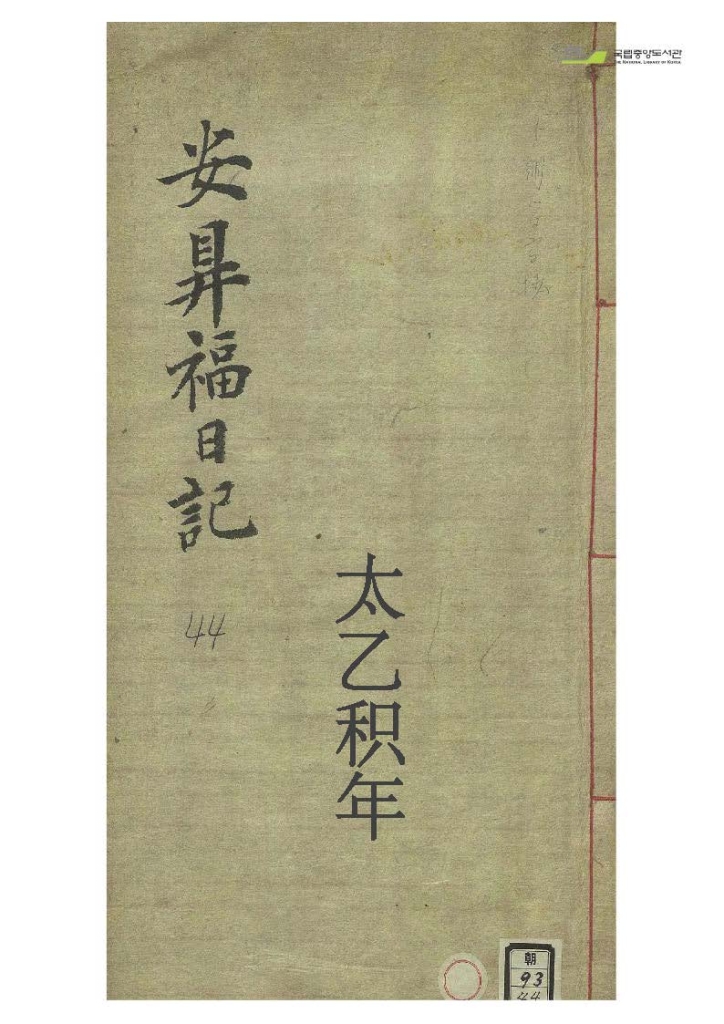 국립중앙도서관
THE NATIONAL LIBRARY OF KOREA
安鼎福日記
44
太乙积年
朝
93
44